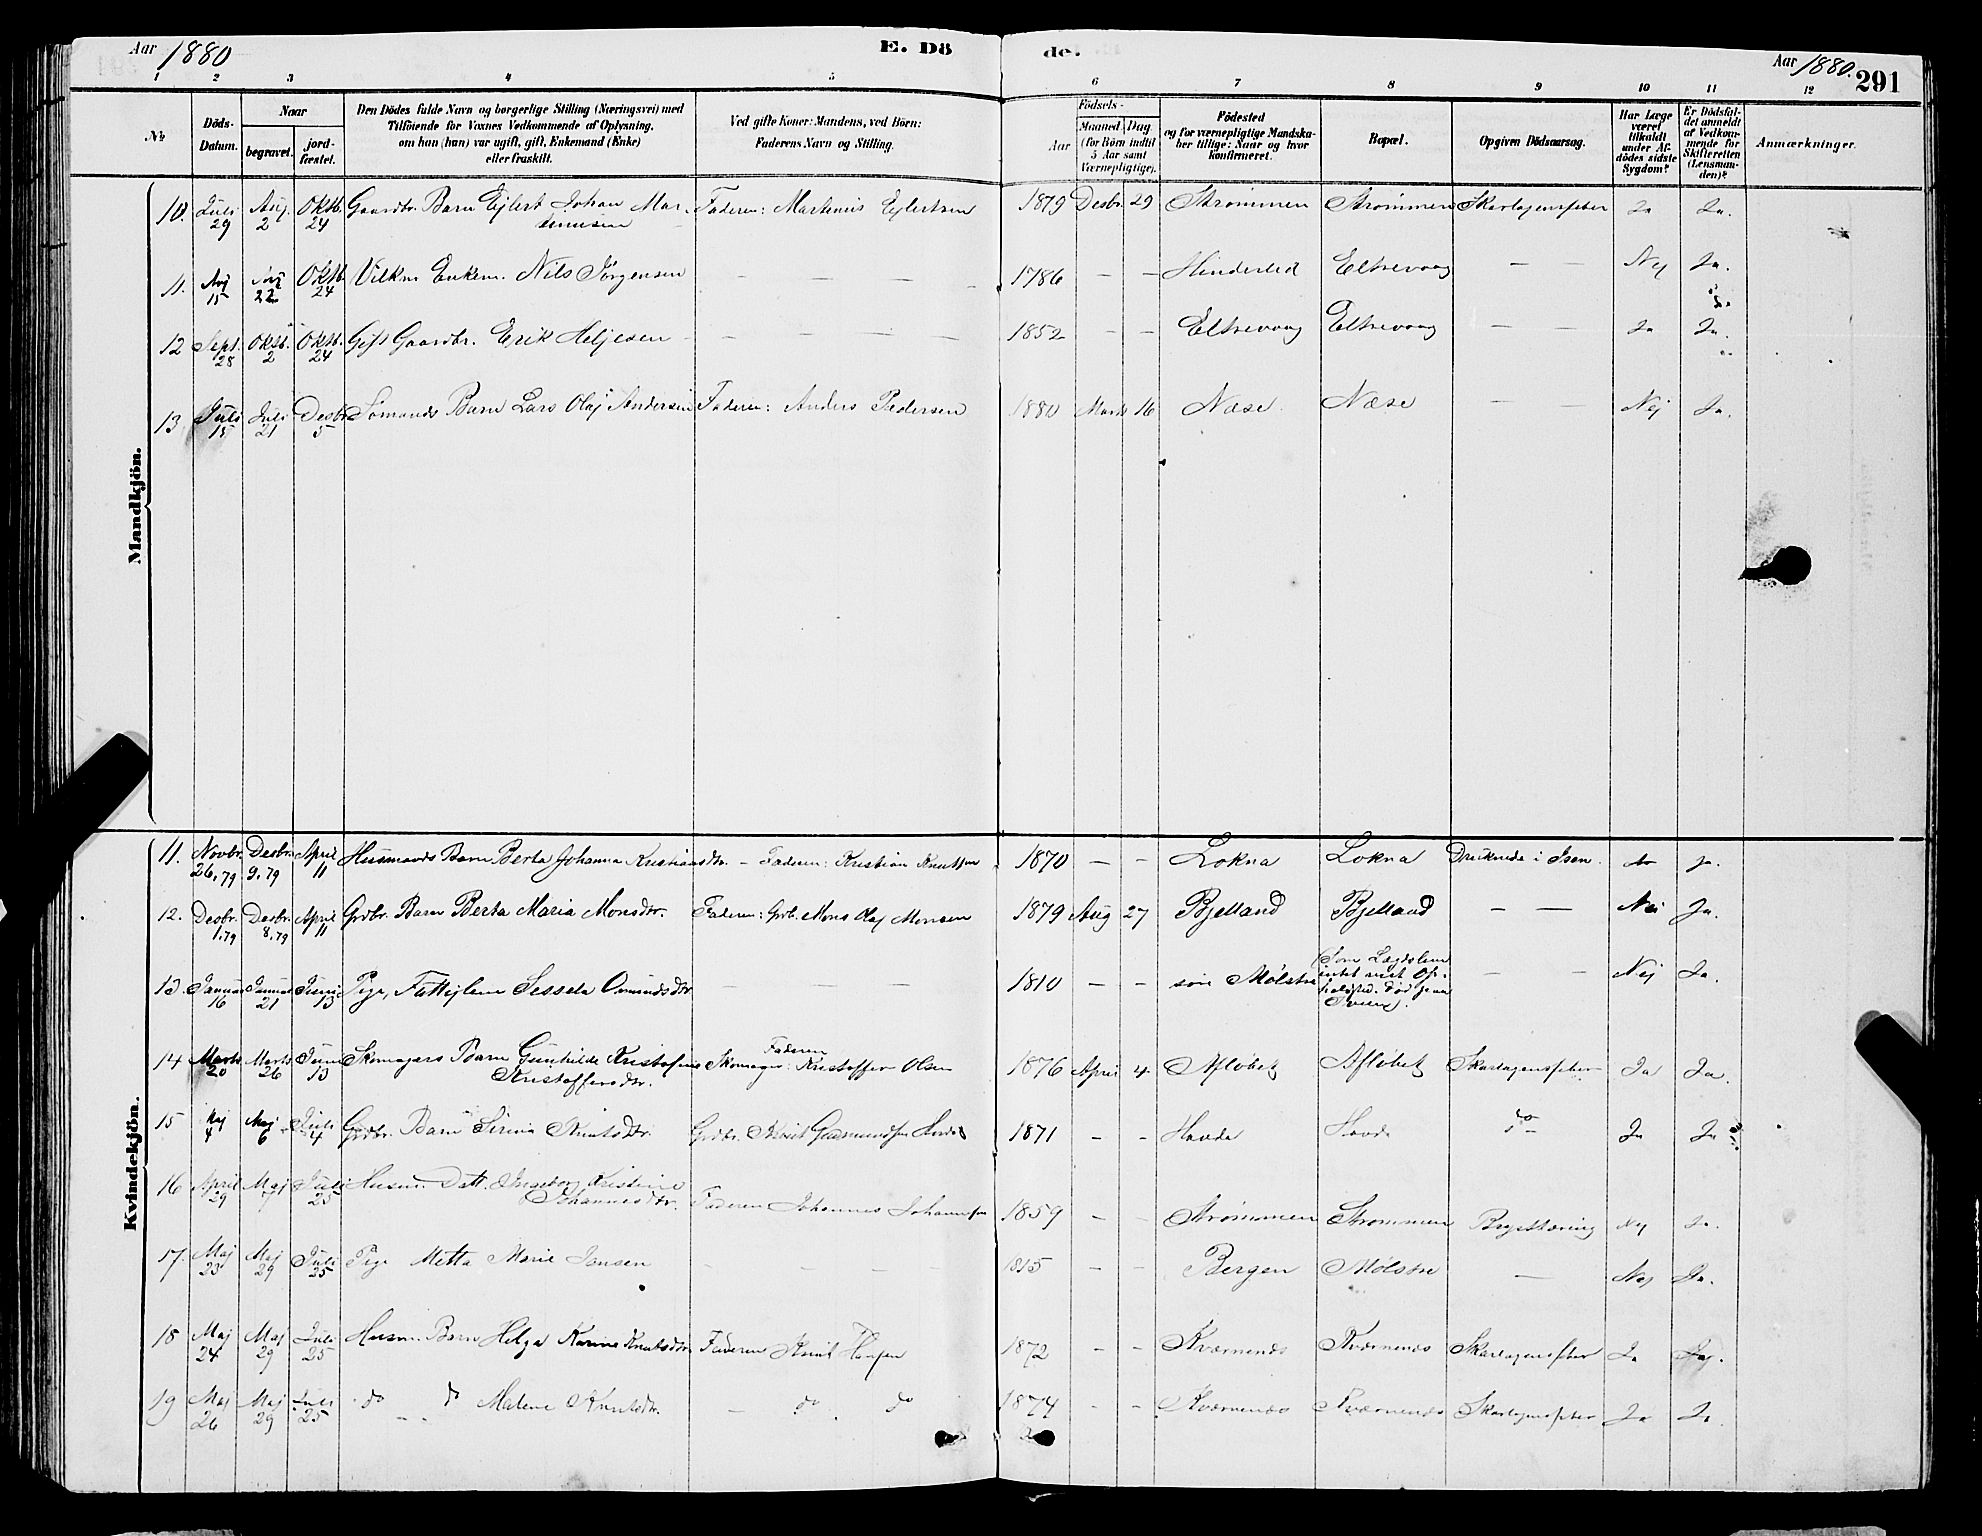 Aar 1880
E. Döde.
Aar 1880.
291
1 2 3 4 5 6 7 8 9 10 11 12
No.
Döds-Datum.
Naar
begravet.
jord-fæstet.
Den Dödes fulde Navn og borgerlige Stilling (Næringsvei) med
Tilföiende for Voxnes Vedkommende af Oplysning,
om han (hun) var ugift, gift, Enkemand (Enke)
eller fraskilt.
Ved gifte Koner: Mandens, ved Börn:
Faderens Navn og Stilling.
Födsels-
Aar
Maaned Dag
(for Börn indtil
5 Aar samt
Værnepligtige).
Födested
og for værnepligtige Mandska-
ber tillige: Naar og hvor
konfirmeret.
Bopæl.
Opgiven Dödsaarsag.
Har Læge
været
tilkaldt
under Af-
dödes sidste
Sygdom?
Er Dödsfal-
det anmeldt
af Vedkom-
mende for
Skifteretten
(Lensman-
den)?
Anmærkninger.
Mandkjön.
10. Juli 29 Aug. 2 Oktb. 24 Gaardbr. Barn Ejlert Johan Mar- Faderen: Martinius Ejlertsen 1879 Desbr. 29 Strømmen Strømmen Skarlagensfeber Ja Ja.
tinusen
11. Aug 15 Aug 22 Oktb. 24 Vilkm. Enkem. Nils Jørgensen — — — 1786 — — Hinderlid Eltrevaag — — Nej Ja.
12 Sept. 28 Oktb. 2 Oktb. 24 Gift Gaardbr. Erik Heljesen — — — 1852 — — Eltrevaag Eltrevaag — — Ja Ja.
13 Juli 15 Juli 21 Desbr. 5 Sømands Barn Lars Olaj Andersen Faderen: Anders Pedersen 1880 Marts 16 Næse Næse — — Nej Ja.
Kvindekjön.
11. Novbr. 26.79 Desbr. 9.79 April 11 Husmands Barn Berta Johanna Kristiansdtr. — Faderen: Kristian Knutsen 1870 — — Lokna Lokna Druknede i Isen. Ja.
12. Desbr. 1.79 Desbr. 8.79 April 11 Grdbr. Barn Berta Maria Monsdtr. Faderen: Grb. Mons Olaj Monsen 1879 Aug 27 Bjelland Bjelland — — Nei Ja.
13. Januar 16 Januar 21 Juni 13 Pige, Fattiglem Sessela Omundsdtr — — — 1810 — — Mølstre (Som Lægdslem
— — Nej Ja.
14 Marts 20 Marts 26 Juni 13 Skomagers Barn Gunhilde Kristofine Faderen Skomager: Kristoffer Olsen 1876 April 4. Afløbet Afløbet Skarlagensfeber Ja Ja.
Kristoffersdtr.
15 Maj 4 Maj 6 Juli 4 Grdbr. Barn Sirina Knutsdtr. Grdbr. Knut Gudmundsen 1871 — — Havda Havda do Ja Ja
16 April 29 Maj 7 Juli 25 Husm. Datt. Ingeborg Kristine
Johannesdtr. Faderen Johannes Johannesen 1859 — — Strømmen Strømmen Brysttæring Nej Ja.
17. Maj 23 Maj 29 Juli 25 Pige Mette Marie Jansen — — — 1815 — — Bergen Mølstre — Nej Ja.
18 Maj 24 Maj 29 Juli 25 Husm. Barn Helga Karine Knutsdtr Faderen Knut Hansen 1872 — — Kværnenæs Kværnenæs Skarlagensfeber Ja Ja.
19 Maj 26 Maj 29 Juli 25 do do Malene Knutsdtr. — do do 1874 — — Kværnenæs Kværnenæs Skarlagensfeber Ja Ja.